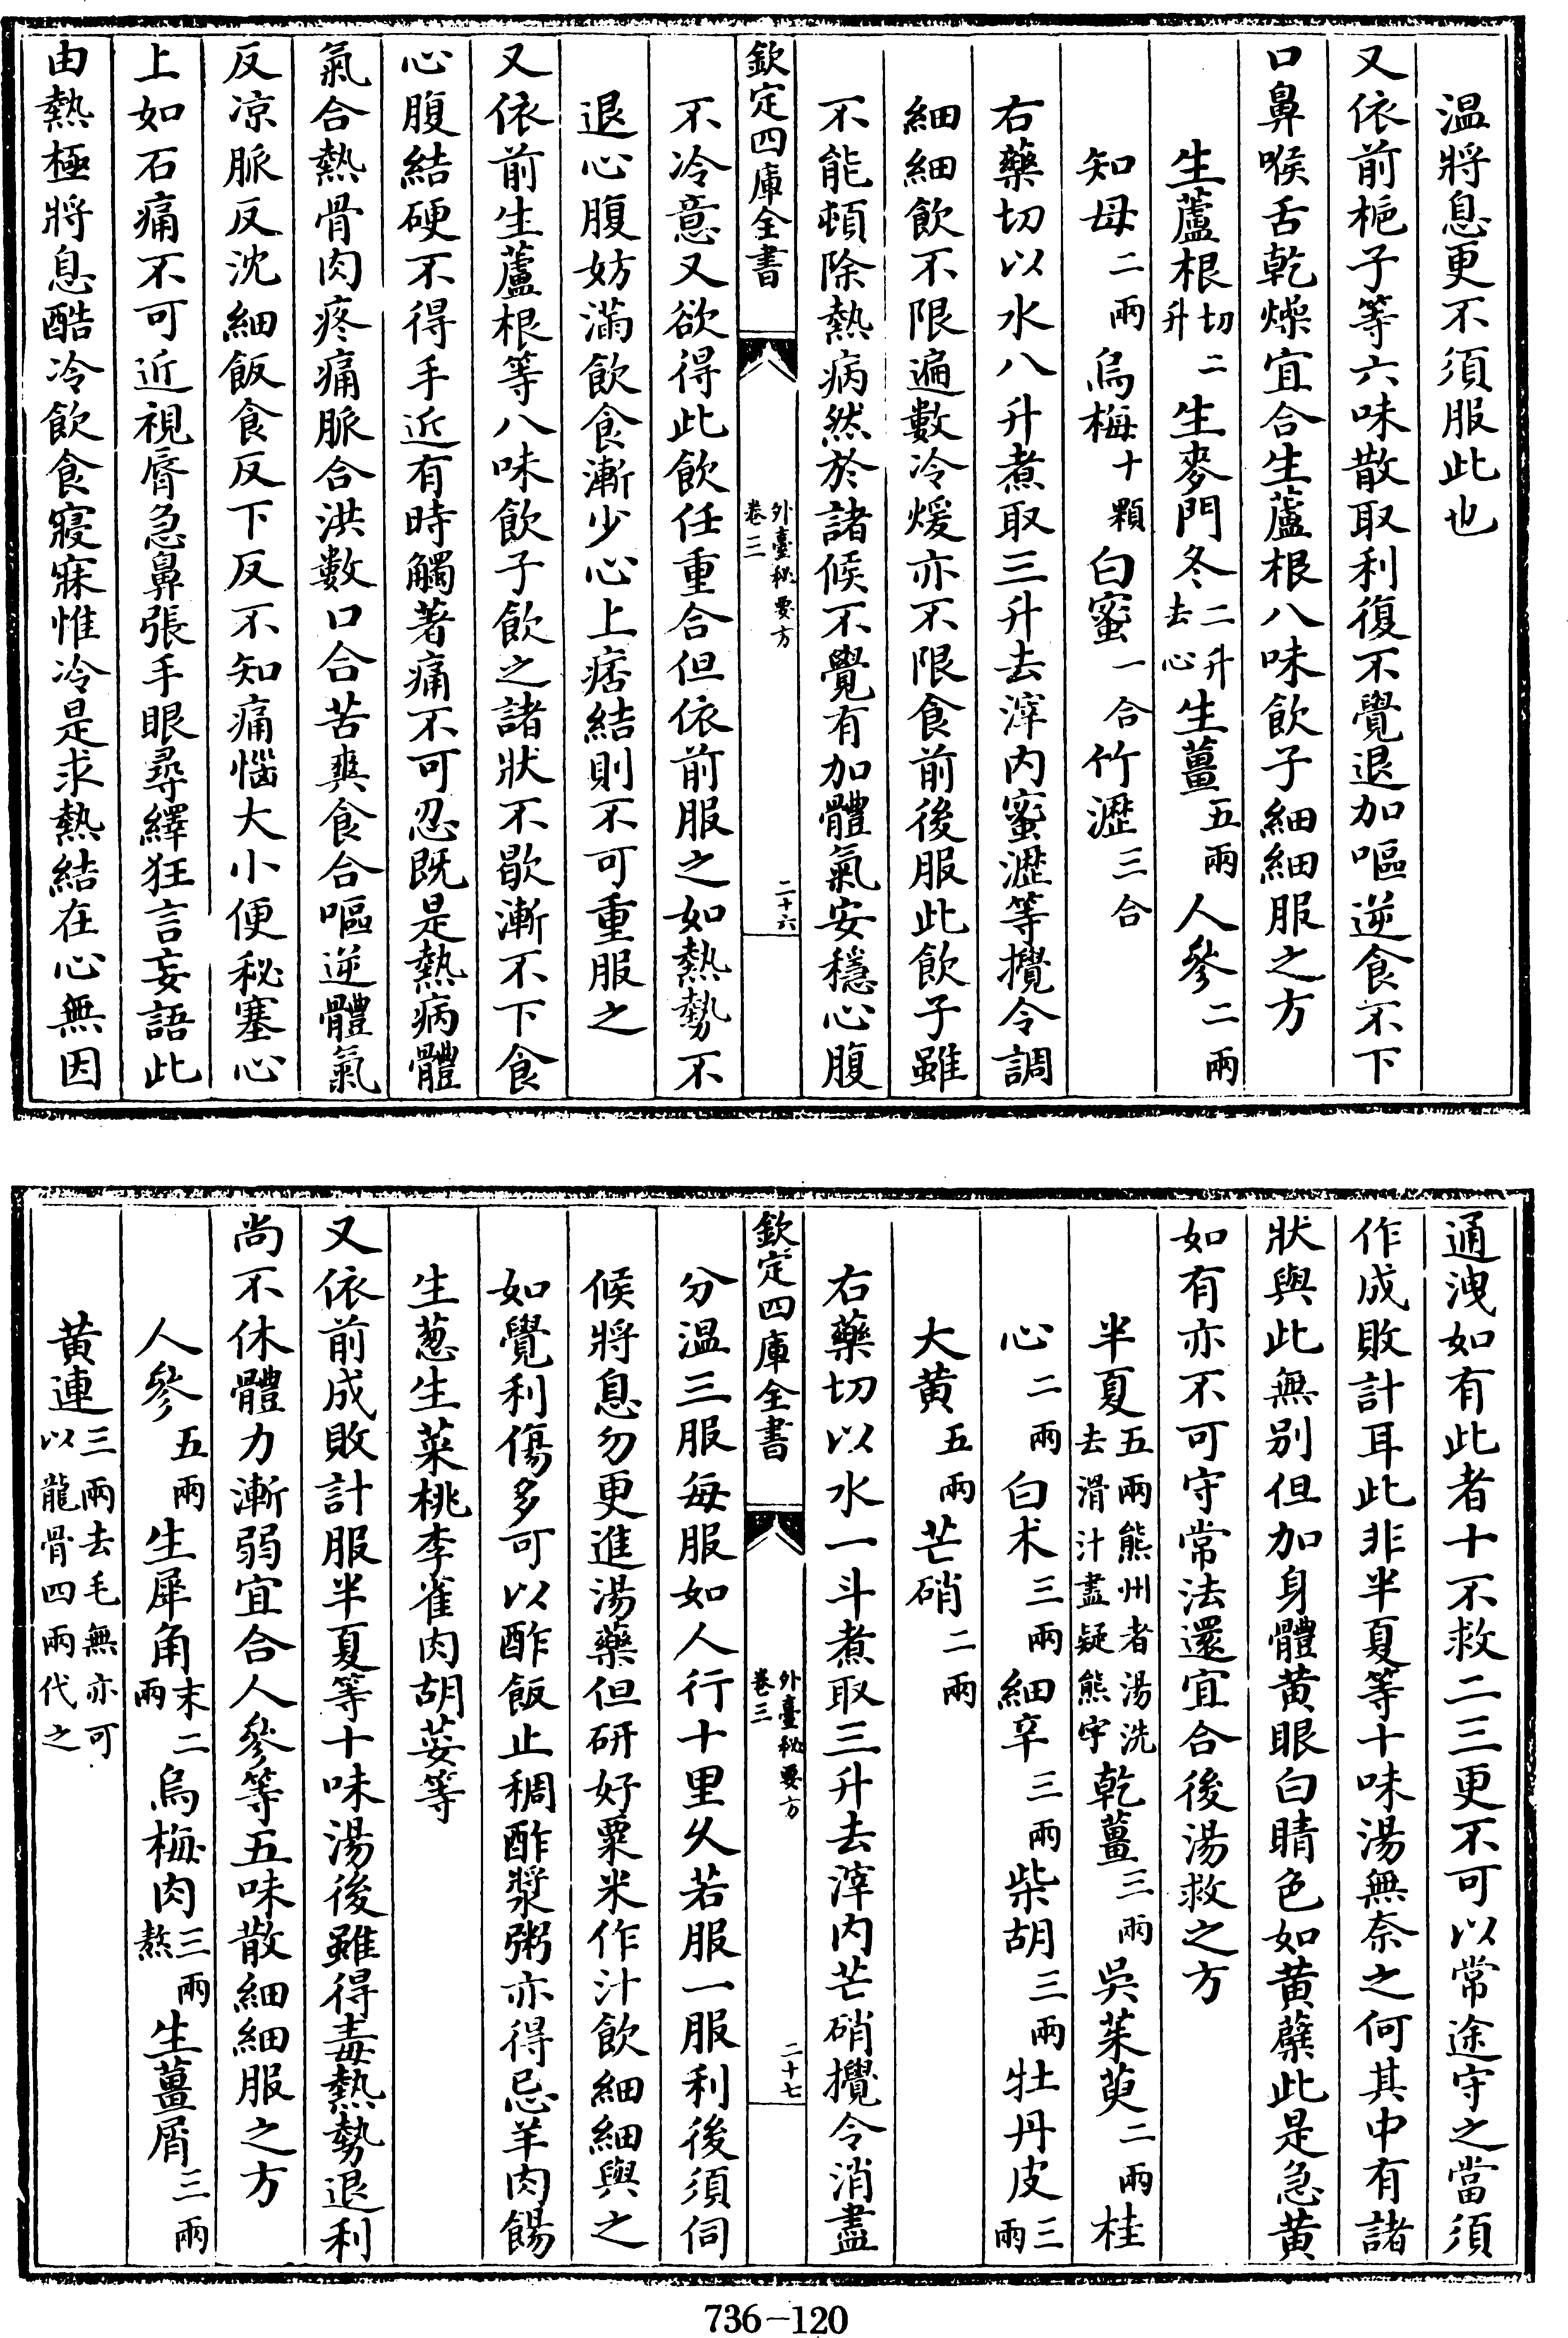 温將息更不須服此也
又依前梔子等六味散取利復不覺退加嘔逆食不下
口鼻喉舌乾燥宜合生蘆根八味飲子細細服之方
生蘆根切二升生麥門冬二升去心生薑五兩人參二兩
知母二兩烏梅十顆白蜜一合竹瀝三合
右藥切以水八升煮取三升去滓内蜜瀝等攪令調
細細飲不限遍數冷煖亦不限食前後服此飲子雖
不能頓除熱病然於諸候不覺有加體氣安穩心腹
欽定四庫全書 外臺秘要方卷三 二十六
不冷意又欲得此飲任重合但依前服之如熱勢不
退心腹妨滿飲食漸少心上痞結則不可重服之
又依前生蘆根等八味飲子飲之諸狀不歇漸不下食
心腹結硬不得手近有時觸著痛不可忍既是熱病體
氣合熱骨肉疼痛脈合洪數口合苦爽食合嘔逆體氣
反凉脈反沈細飯食反下反不知痛惱大小便秘塞心
上如石痛不可近視脣急鼻張手眼尋繹狂言妄語此
由熱極將息酷冷飲食寢寐惟冷是求熱結在心無因
通洩如有此者十不救二三更不可以常途守之當須
作成敗計耳此非半夏等十味湯無奈之何其中有諸
狀與此無别但加身體黄眼白睛色如黄蘗此是急黄
如有亦不可守常法還宜合後湯救之方
半夏五兩熊州者湯洗去滑汁盡疑熊字乾薑三兩吳茱萸二兩桂
心二兩白朮三兩細辛三兩柴胡三兩牡丹皮三兩
大黄五兩芒硝二兩
右藥切以水一斗煮取三升去滓内芒硝攪令消盡
欽定四庫全書 外臺秘要方卷三 二十七
分温三服每服如人行十里久若服一服利後須伺
候將息勿更進湯藥但研好粟米作汁飲細細與之
如覺利傷多可以酢飯止稠酢漿粥亦得忌羊肉餳
生葱生菜桃李雀肉胡荽等
又依前成敗計服半夏等十味湯後雖得毒熱勢退利
尚不休體力漸弱宜合人參等五味散細細服之方
人參五兩生犀角末二兩烏梅肉三兩熬生薑屑三兩
黄連三兩去毛無亦可以龍骨四兩代之
736-120